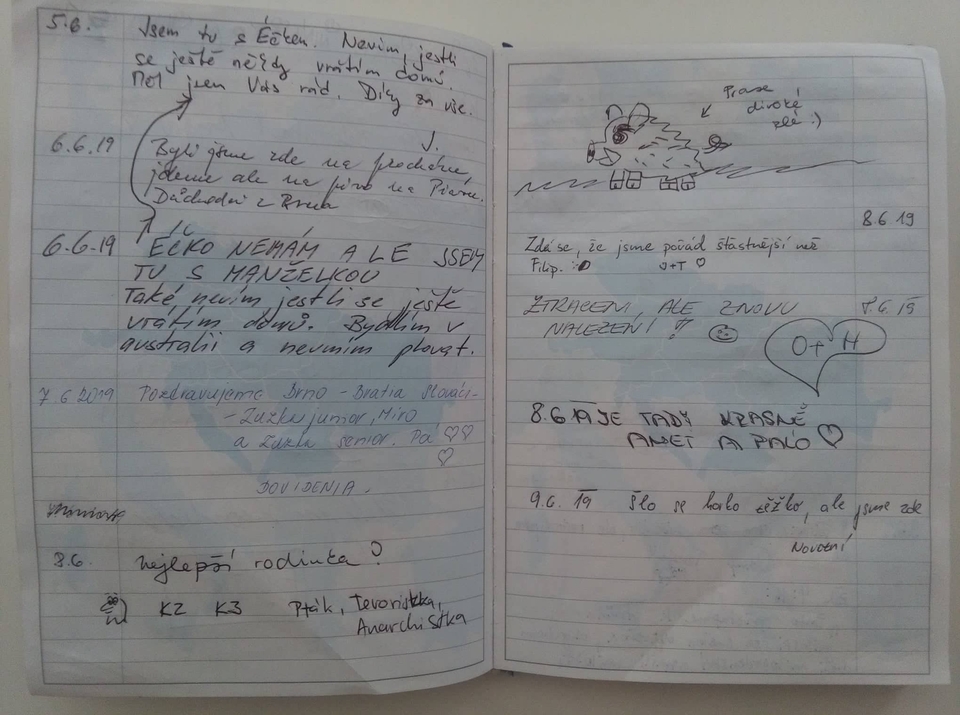 5.6. Jsem tu s Éčkem. Nevím, jestli
se ještě někdy vrátím domů.
Měl jsem Vás rád. Díky za vše.
J.
6.6.19 Byli jsme zde na procházce,
jdeme ale na pivo na
Důchodci z Brna
6.6.19 ÉČKO NEMÁM ALE JSEM
TU S MANŽELKOU
Také nevím jestli se ještě
vrátím domů. Bydlím v
australii a neumím plovat.
7 6 2019 Pozdravujeme Brno - Bratia Slováci -
- Zuzka junior, Miro
a Zuzka senior. Pá ♡♡
♡
DOVIDENIA.
8.6. nejlepší rodinka?
K2 K3 Pták, Teroristka,
Anarchistka
Prase
divoké
zlé :)
8.6 19
Zdá se, že jsme pořád šťastnější než
Filip. J+T ♡
ZTRACENI, ALE ZNOVU 8.6.19
NALEZENÍ!
O+H
8.6 19 JE TADY KRASNĚ
ANET A PALO ♡
9.6. 19 Šlo se hako těžko, ale jsme zde
Novotní